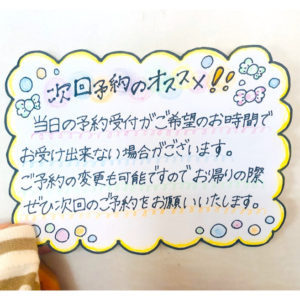 次回予約のオススメ!!
当日の予約受付がご希望のお時間で
お受け出来ない場合がございます。
ご予約の変更も可能ですのでお帰りの際
ぜひ次回のご予約をお願いいたします。